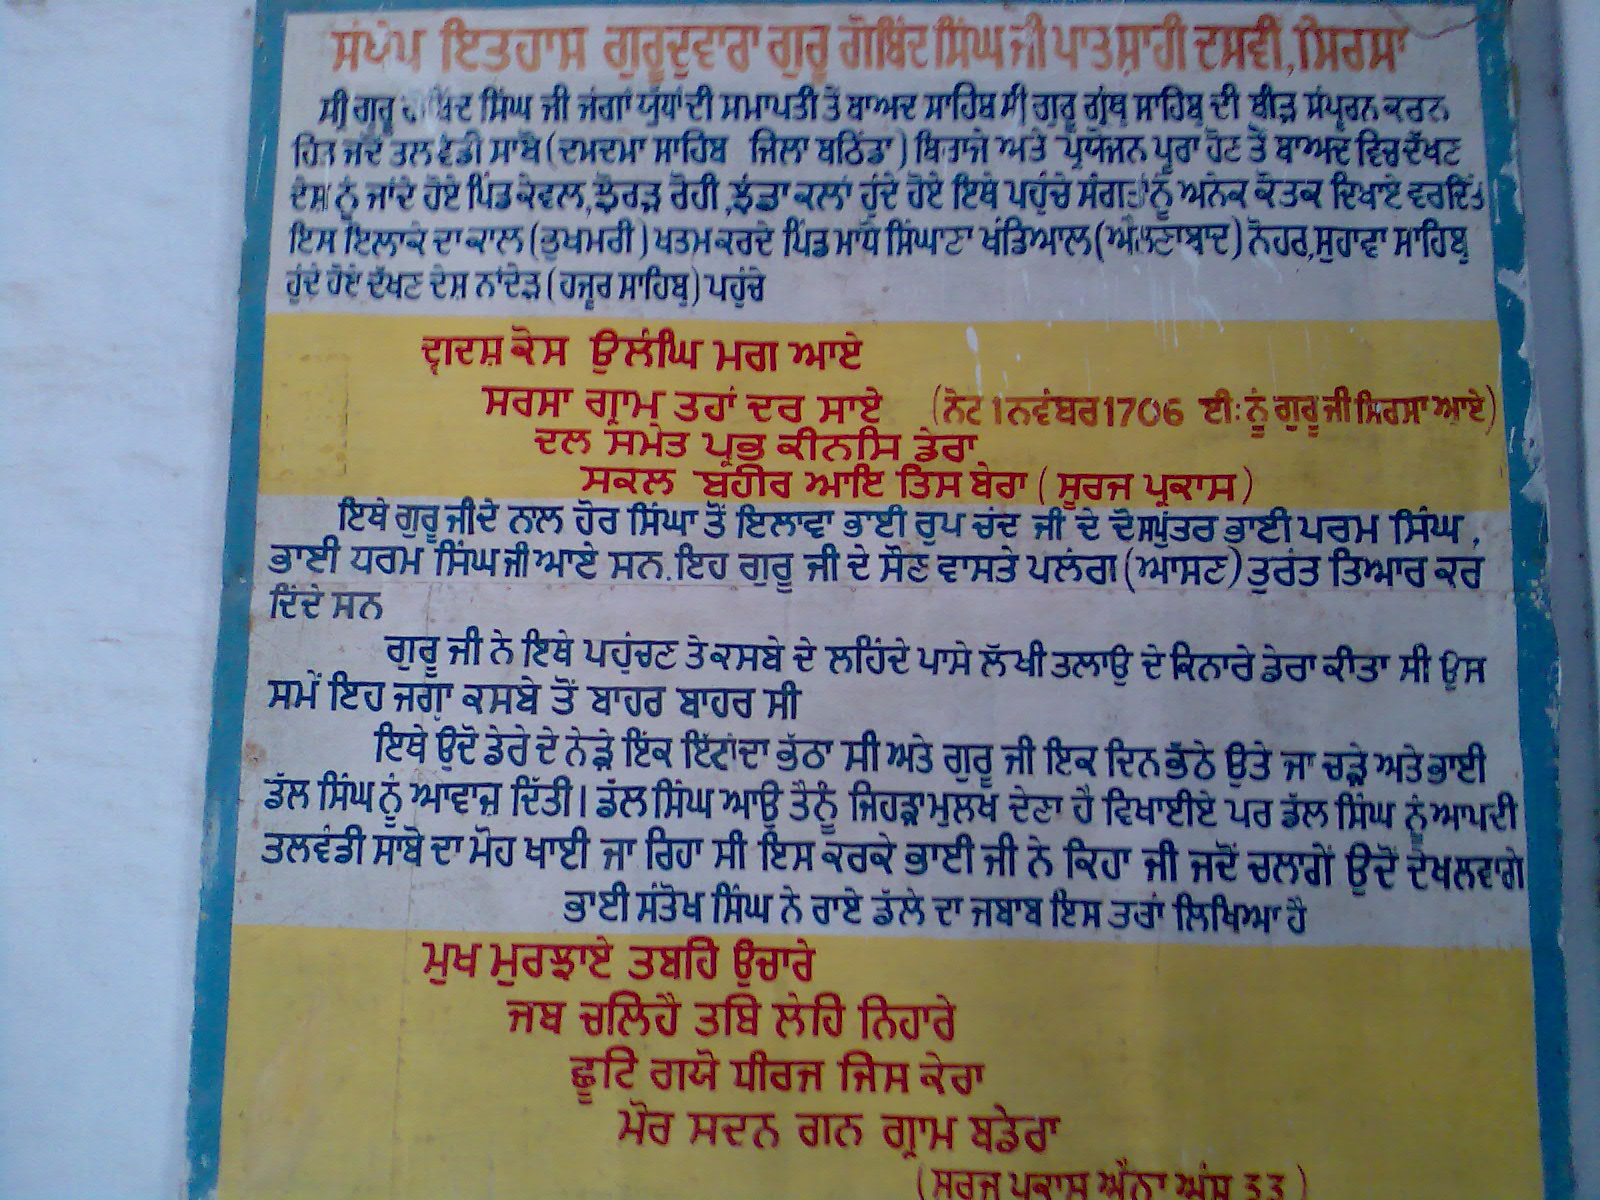 ਸੰਖੇਪ ਇਤਹਾਸ ਗੁਰੂਦੁਵਾਰਾ ਗੁਰੂ ਗੋਬਿੰਦ ਸਿੰਘ ਜੀ ਪਾਤਸ਼ਾਹੀ ਦਸਵੀ, ਸਿਰਸਾ
ਸ੍ਰੀ ਗੁਰੂ ਸਿੰਘ ਜੀ ਜੰਗਾਂ ਯੁੱਧਾਂ ਦੀ ਸਮਾਪਤੀ ਤੋਂ ਬਾਅਦ ਸਾਹਿਬ ਸ੍ਰੀ ਗੁਰੂ ਗ੍ਰੰਥ ਸਾਹਿਬ ਦੀ ਬੀੜ ਸੰਪੂਰਨ ਕਰਨ
ਹਿਤ ਜਦੋਂ ਤਲਵੰਡੀ ਸਾਬੋ (ਦਮਦਮਾ ਸਾਹਿਬ ਜਿਲਾ ਬਠਿੰਡਾ) ਬਿਰਾਜੇ ਅਤੇ ਪ੍ਰਯੋਜਨ ਪੂਰਾ ਹੋਣ ਤੋਂ ਬਾਅਦ ਵਿਚ ਦੱਖਣ
ਦੇਸ਼ ਨੂੰ ਜਾਂਦੇ ਹੋਏ ਪਿੰਡ ਕੇਵਲ, ਝੋਰੜ ਰੋਹੀ, ਝੰਡਾ ਕਲਾਂ ਹੁੰਦੇ ਹੋਏ ਇਥੇ ਪਹੁੰਚੇ ਸੰਗਤਾਂ ਨੂੰ ਅਨੇਕ ਕੋਤਕ ਦਿਖਾਏ ਵਰਦਿੱਤੇ
ਇਸ ਇਲਾਕੇ ਦਾ ਕਾਲ (ਭੁਖਮਰੀ) ਖਤਮ ਕਰਦੇ ਪਿੰਡ ਮਾਧੋ ਸਿੰਘਾਣਾ ਖੰਡਿਆਲ (ਐਲਨਾਬਾਦ) ਨੋਹਰ, ਸੁਹਾਵਾ ਸਾਹਿਬ
ਹੁੰਦੇ ਹੋਏ ਦੱਖਣ ਦੇਸ਼ ਨਾਂਦੇੜ (ਹਜ਼ੂਰ ਸਾਹਿਬ) ਪਹੁੰਚੇ
ਦ੍ਵਾਦਸ਼ ਕੋਸ ਉਲੰਘਿ ਮਗ ਆਏ
ਸਰਸਾ ਗ੍ਰਾਮ ਤਹਾਂ ਦਰ ਸਾਏ (ਨੋਟ 1 ਨਵੰਬਰ 1706 ਈ: ਨੂੰ ਗੁਰੂ ਜੀ ਸਿਰਸਾ ਆਏ)
ਦਲ ਸਮੇਤ ਪ੍ਰਭ ਕੀਨਸਿ ਡੇਰਾ
ਸਕਲ ਬਹੀਰ ਆਇ ਤਿਸ ਬੇਰਾ (ਸੂਰਜ ਪ੍ਰਕਾਸ)
ਇਥੇ ਗੁਰੂ ਜੀ ਦੇ ਨਾਲ ਹੋਰ ਸਿੰਘਾ ਤੋਂ ਇਲਾਵਾ ਭਾਈ ਰੁਪ ਚੰਦ ਜੀ ਦੇ ਦੋ ਸਪੁੱਤਰ ਭਾਈ ਪਰਮ ਸਿੰਘ,
ਭਾਈ ਧਰਮ ਸਿੰਘ ਜੀ ਆਏ ਸਨ. ਇਹ ਗੁਰੂ ਜੀ ਦੇ ਸੌਣ ਵਾਸਤੇ ਪਲੰਗ (ਆਸਣ) ਤੁਰੰਤ ਤਿਆਰ ਕਰ
ਦਿੰਦੇ ਸਨ
ਗੁਰੂ ਜੀ ਨੇ ਇਥੇ ਪਹੁੰਚਣ ਤੇ ਕਸਬੇ ਦੇ ਲਹਿੰਦੇ ਪਾਸੇ ਲੱਖੀ ਤਲਾਉ ਦੇ ਕਿਨਾਰੇ ਡੇਰਾ ਕੀਤਾ ਸੀ ਉਸ
ਸਮੇਂ ਇਹ ਜਗ੍ਹਾ ਕਸਬੇ ਤੋਂ ਬਾਹਰ ਬਾਹਰ ਸੀ
ਇਥੇ ਉਦੋਂ ਡੇਰੇ ਦੇ ਨੇੜੇ ਇੱਕ ਇੱਟਾਂ ਦਾ ਭੱਠਾ ਸੀ ਅਤੇ ਗੁਰੂ ਜੀ ਇਕ ਦਿਨ ਭੱਠੇ ਉਤੇ ਜਾ ਚੜ੍ਹੇ ਅਤੇ ਭਾਈ
ਡੱਲ ਸਿੰਘ ਨੂੰ ਆਵਾਜ਼ ਦਿੱਤੀ। ਡੱਲ ਸਿੰਘ ਆਉ ਤੈਨੂੰ ਜਿਹੜਾ ਮੁਲਖ ਦੇਣਾ ਹੈ ਵਿਖਾਈਏ ਪਰ ਡੱਲ ਸਿੰਘ ਨੂੰ ਆਪਦੀ
ਤਲਵੰਡੀ ਸਾਬੋ ਦਾ ਮੋਹ ਖਾਈ ਜਾ ਰਿਹਾ ਸੀ ਇਸ ਕਰਕੇ ਭਾਈ ਜੀ ਨੇ ਕਿਹਾ ਜੀ ਜਦੋਂ ਚਲਾਗੇਂ ਉਦੋਂ ਦੇਖਲਵਾਂਗੇ
ਭਾਈ ਸੰਤੋਖ ਸਿੰਘ ਨੇ ਰਾਏ ਡੱਲੇ ਦਾ ਜਬਾਬ ਇਸ ਤਰਾਂ ਲਿਖਿਆ ਹੈ
ਮੁਖ ਮੁਰਝਾਏ ਤਬਹਿ ਉਚਾਰੇ
ਜਬ ਚਲਿਹੈ ਤਬਿ ਲੇਹਿ ਨਿਹਾਰੇ
ਛੂਟਿ ਗਯੋ ਧੀਰਜ ਜਿਸ ਕੇਰਾ
ਮੋਰ ਸਦਨ ਗਨ ਗ੍ਰਾਮ ਬਡੇਰਾ
(ਸੂਰਜ ਪ੍ਰਕਾਸ ਐਨਾ ਅੰਸੂ 33)